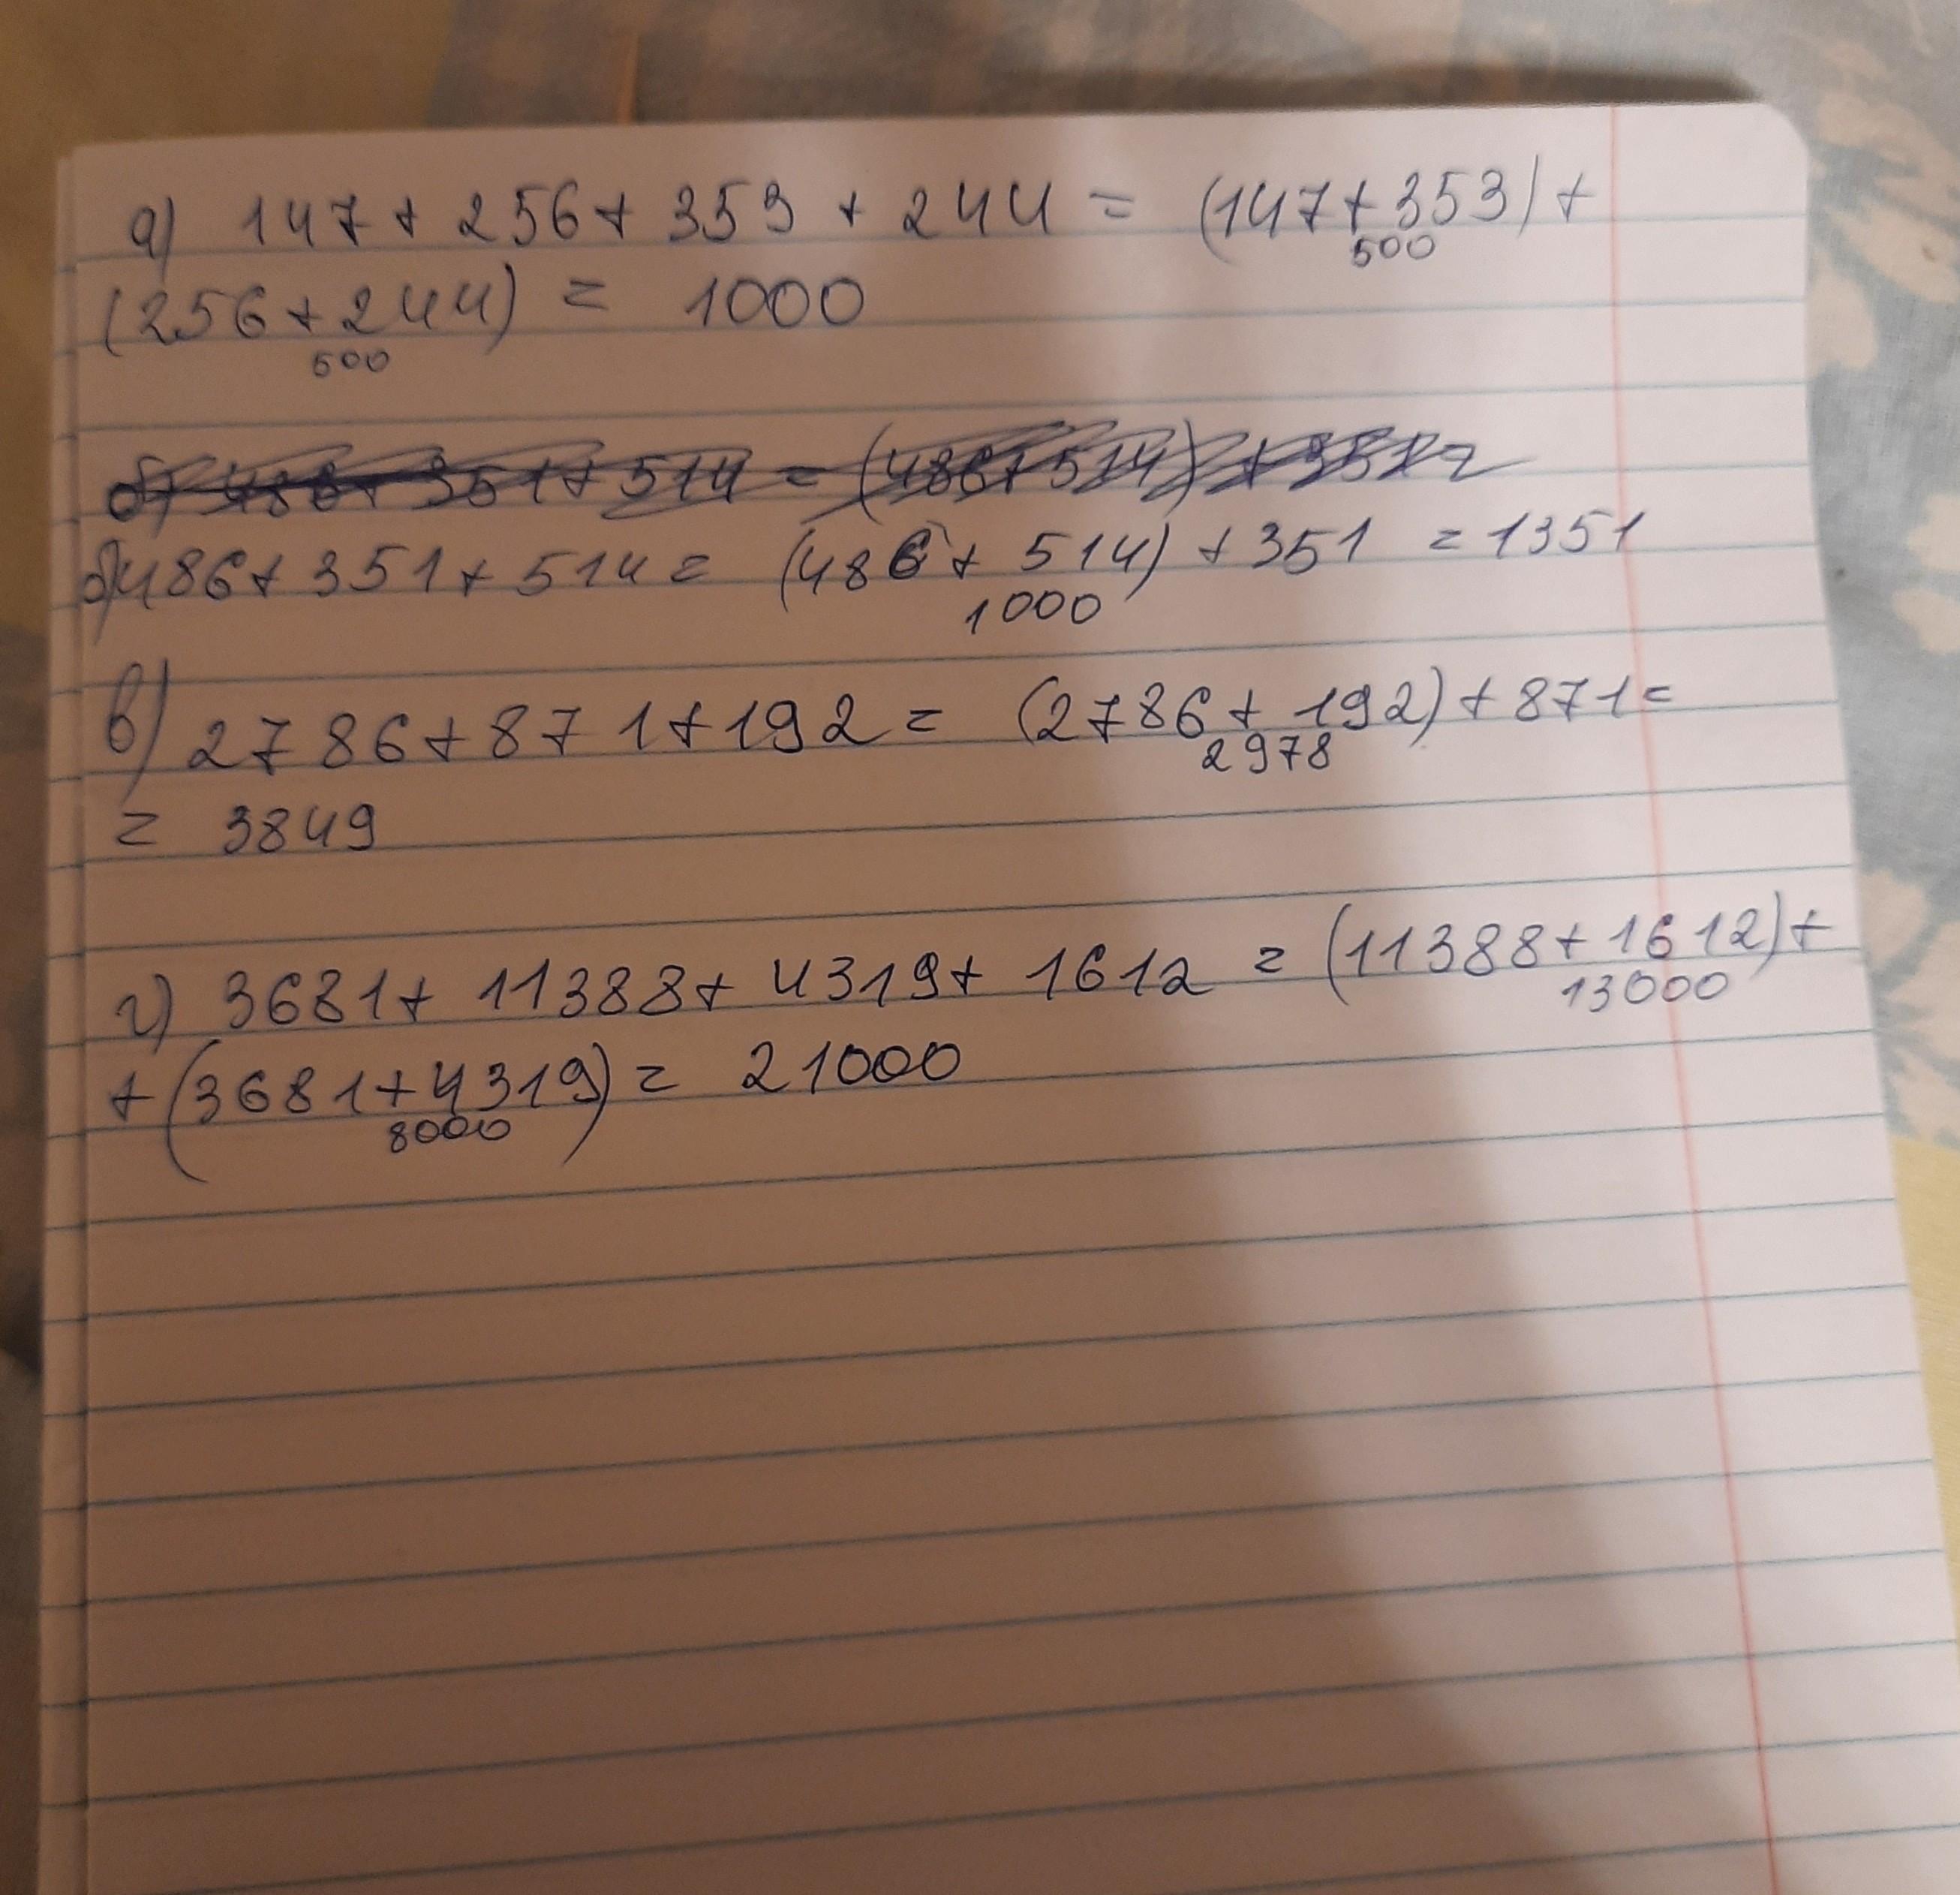 а) 147 + 256 + 353 + 244 = (147 + 353) +
500
(256 + 244) = 1000
500
б) 486 + 351 + 514 = (486 + 514) + 351 =
б) 486 + 351 + 514 = (486 + 514) + 351 = 1351
1000
в) 2786 + 871 + 192 = (2786 + 192) + 871 =
2978
= 3849
г) 3681 + 11388 + 4319 + 1612 = (11388 + 1612) +
13000
+ (3681 + 4319) = 21000
8000